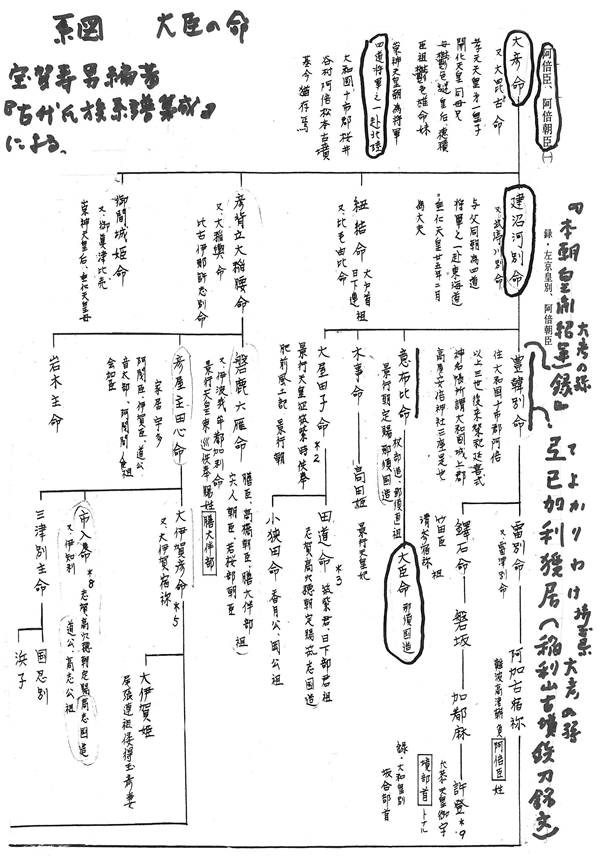 系図 大臣の命
宝賀寿男編著
『古代氏族系譜集成』
による。
阿倍臣、阿倍朝臣(一)
大彦命
又、大毘古命
孝元天皇才一皇子
開化天皇同母兄
母欝色謎皇后穂積
臣祖欝色雄命妹
四道将軍之一赴北陸
崇神天皇朝為将軍
大和国十市郡桜井
谷村阿倍松本古墳
墓今猶存焉
『本朝皇胤招運録』
録・左京皇別、阿倍朝臣
建沼河別命
又、武渟川別命
与父同朝為四道
将軍之一赴東海道
垂仁天皇廿五年二月
為大夫
紐結命
大戸首
日下連
祖
又、比毛由比命
彦背立大稲腰命
又、大稲輿命
比古伊那許志別命
御間城姫命
又、御真津比売
崇神天皇后、垂仁天皇母
大彦の孫
豊韓別命
住大和国十市郡阿倍
以上三世後来祭祀延喜式
神名帳所謂大和国城上郡
高屋安倍神社三座是也
意布比命
杖部造、那須直祖
景行朝定賜那須国造
木事命
高田姫
景行天皇妃
大屋田子命 *2
景行天皇征筑紫時供奉
肥前風土記 景行朝
磐鹿六雁命
又、伊波我牟都加利命
景行天皇東巡供奉賜姓膳大伴部
膳臣、高橋朝臣、膳大伴部
宍人朝臣、若桜部朝臣
祖
彦屋主田心命
家居宇多
阿閇臣、伊賀臣、道公
音太部、阿閇間人臣祖
会加臣
岩木主命
てよかりわけ 埼玉県 大彦の孫
弖已加利獲居(稲荷山古墳鉄刀銘文)
雷別命
又、雷津別命
阿加古宿祢
難波高津朝負阿倍臣姓
鐸石命
竹田臣 祖
磐坂
加都麻
許登 *9
允恭天皇御宇
境部首トナル
録・大和皇別
坂合部首
大臣命 那須国造
田道命 *3
筑紫君、日下部君祖
志賀高穴穂朝定賜筑志国造
小狭田命
香月公、岡公祖
大伊賀彦命 *5
又、大伊賀宿祢
大伊賀姫
尾張連祖倭得玉彦妻
市入命 *8
又、伊知利
志賀高穴穂朝定賜高志国造
道公、高志公祖
三津別主命
国忍別
浜子